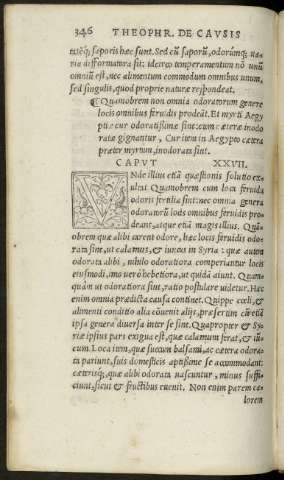 346 THEOPHR. DE CAVSIS
tisq́; saporis hæc sunt. Sed cũ saporũ, odorũmq; ua
ria differmatura sit: idcirco temperamentum nõ unũ
omniũ est, nec alimentum commodum omnibus unum,
sed singulis, quod propriæ naturæ respondeat.
¶ Quamobrem non omnia odoratorum genere
locis omnibus feruidis prodeãt. Et myrti Aegy
ptiæ cur odoratissimæ sint: cum cæteræ inodo
ratæ gignantur, Cur item in Aegypto cætera
præter myrtum, inodorata sint.
CAPVT XXVII.
VNde illius etiã quæstionis solutio ex‑
ultat Quamobrem cum loca feruida
odoris fertilia sint: nec omnia genera
odoratorũ locis omnibus feruidis pro‑
deant, atque etiã magis illius. Quã‑
obrem quæ alibi carent odore, hæc locis feruidis odo‑
rata sint, ut calamus, & iuncus in Syria: quæ autem
odorata alibi, nihilo odoratiora comperiantur locis
eiusmodi, imo uerò hebetiora, ut quidã aiunt. Quan‑
quàm ut odoratiora sint, ratio postulare uidetur. Hæc
enim omnia prædicta causa continet. Quippe cœli, &
alimenti conditio alia cõuenit alijs, præsertim cũ etiã
ipsa genera diuersa inter se sint. Quapropter & Sy‑
riæ ipsius pars exigua est, quæ calamum ferat, & iũ‑
cum. Loca item, quæ succum balsami, ac cætera odora‑
ta pariunt, suis domesticis aptissime se accommodant:
cæterisq́;, quæ alibi odorata nascuntur, minus suffi‑
ciunt, sicut & fructibus euenit. Non enim parem ca‑
lorem